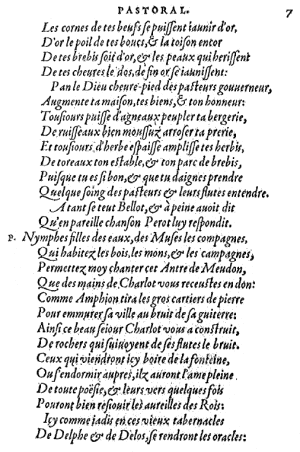 PASTORAL. 7
Les cornes de tes beufs se puissent iaunir d'or,
D'or le poil de tes boucs, & la toison entor
De tes brebis soit d'or, & les peaux qui herissent
De tes cheures le dos, de fin or se iaunissent:
Pan le Dieu cheure-pied des pasteurs gouuerneur,
Augmente ta maison, tes biens, & ton honneur:
Tousiours puisse d'agneaux peupler ta bergerie,
De ruisseaux bien moussuz arroser ta prerie,
Et tousiours d'herbe espaisse amplisse tes herbis,
De toreaux ton estable, & ton parc de brebis,
Puisque tu es si bon, & que tu daignes prendre
Quelque soing des pasteurs & leurs flutes entendre.
A tant se teut Bellot, & à peine auoit dit
Qu'en pareille chanson Perot luy respondit.
P. Nymphes filles des eaux, des Muses les compagnes,
Qui habitez les bois, les mons, & les campagnes,
Permettez moy chanter cet Antre de Meudon,
Que des mains de Charlot vous receustes en don:
Comme Amphion tira les gros cartiers de pierre
Pour emmurer sa ville au bruit de sa guiterre:
Ainsi ce beau seiour Charlot vous a construit,
De rochers qui suiuoyent de ses flutes le bruit.
Ceux qui viendront icy boire de la fonteine,
Ou s'endormir aupres, ilz auront l'ame pleine
De toute poësie, & leurs vers quelques fois
Pouront bien resiouir les aureilles des Rois:
Icy comme iadis en ces vieux tabernacles
De Delphe & de Delos, se rendront les oracles: